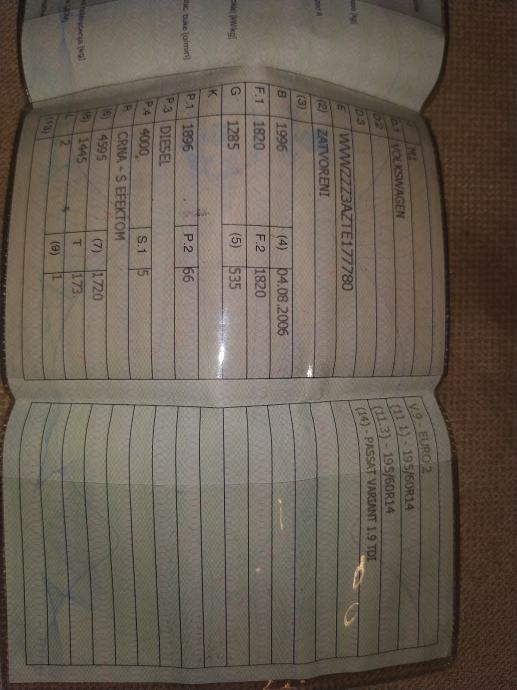 J M1
D.1 VOLKSWAGEN
D.2
D.3
E WVWZZZ3AZTE177780
(2) ZATVORENI
(3)
B 1996 (4) 04.08.2006
F.1 1820 F.2 1820
G 1285 (5) 535
K
P.1 1896 P.2 66
P.3 DIESEL
P.4 4000 S.1 5
R CRNA - S EFEKTOM
(6) 4595 (7) 1720
(8) 1445 T 173
L 2 (9) 1
V.9 - EURO 2
(11.1) - 195/60R14
(11.3) - 195/60R14
(14) - PASSAT VARIANT 1.9 TDI